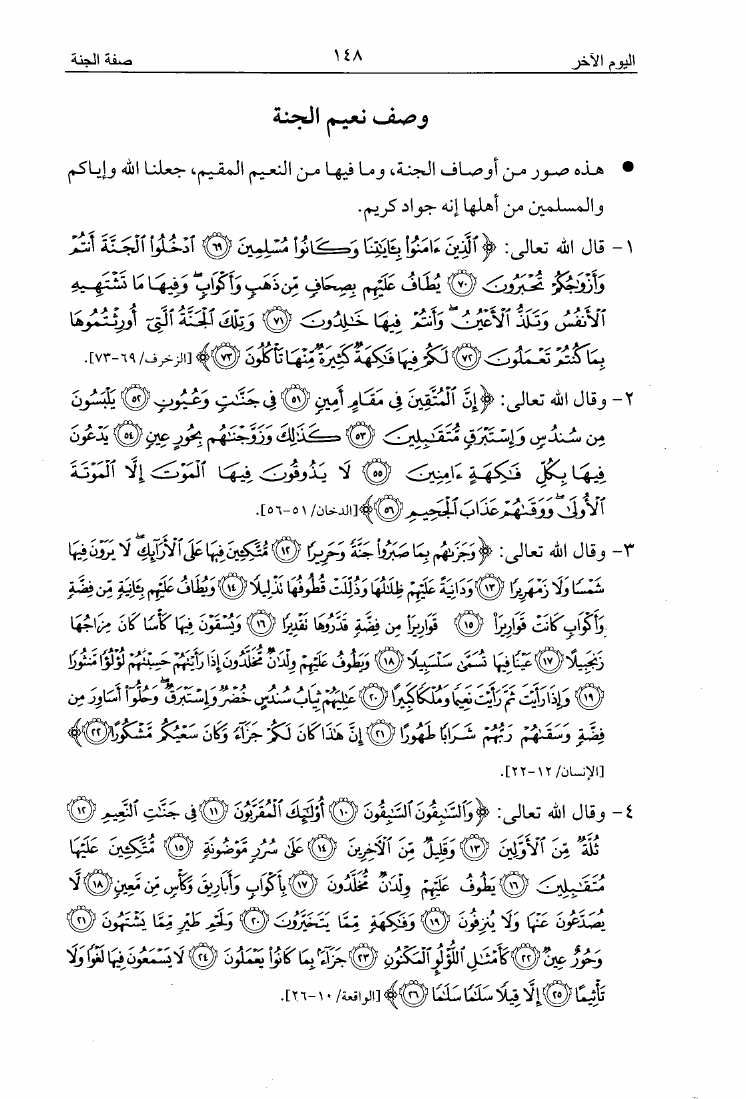 اليوم الآخر ١٤٨ صفة الجنة
وصف نعيم الجنة
● هذه صور من أوصاف الجنة، وما فيها من النعيم المقيم، جعلنا الله وإياكم
والمسلمين من أهلها إنه جواد كريم.
١- قال الله تعالى: ﴿ٱلَّذِينَ ءَامَنُواْ بِـَٔايَٰتِنَا وَكَانُواْ مُسْلِمِينَ ٦٩ ٱدْخُلُواْ ٱلْجَنَّةَ أَنتُمْ
وَأَزْوَٰجُكُمْ تُحْبَرُونَ ٧٠ يُطَافُ عَلَيْهِم بِصِحَافٍ مِّن ذَهَبٍ وَأَكْوَابٍ ۖ وَفِيهَا مَا تَشْتَهِيهِ
ٱلْأَنفُسُ وَتَلَذُّ ٱلْأَعْيُنُ ۖ وَأَنتُمْ فِيهَا خَٰلِدُونَ ٧١ وَتِلْكَ ٱلْجَنَّةُ ٱلَّتِىٓ أُورِثْتُمُوهَا
بِمَا كُنتُمْ تَعْمَلُونَ ٧٢ لَكُمْ فِيهَا فَٰكِهَةٌ كَثِيرَةٌ مِّنْهَا تَأْكُلُونَ ٧٣﴾ [الزخرف/٦٩-٧٣].
٢- وقال الله تعالى: ﴿إِنَّ ٱلْمُتَّقِينَ فِى مَقَامٍ أَمِينٍ ٥١ فِى جَنَّٰتٍ وَعُيُونٍ ٥٢ يَلْبَسُونَ
مِن سُندُسٍ وَإِسْتَبْرَقٍ مُّتَقَٰبِلِينَ ٥٣ كَذَٰلِكَ وَزَوَّجْنَٰهُم بِحُورٍ عِينٍ ٥٤ يَدْعُونَ
فِيهَا بِكُلِّ فَٰكِهَةٍ ءَامِنِينَ ٥٥ لَا يَذُوقُونَ فِيهَا ٱلْمَوْتَ إِلَّا ٱلْمَوْتَةَ
ٱلْأُولَىٰ ۖ وَوَقَىٰهُمْ عَذَابَ ٱلْجَحِيمِ ٥٦﴾ [الدخان/٥١-٥٦].
٣- وقال الله تعالى: ﴿وَجَزَىٰهُم بِمَا صَبَرُواْ جَنَّةً وَحَرِيرًا ١٢ مُّتَّكِـِٔينَ فِيهَا عَلَى ٱلْأَرَآئِكِ ۖ لَا يَرَوْنَ فِيهَا
شَمْسًا وَلَا زَمْهَرِيرًا ١٣ وَدَانِيَةً عَلَيْهِمْ ظِلَٰلُهَا وَذُلِّلَتْ قُطُوفُهَا تَذْلِيلًا ١٤ وَيُطَافُ عَلَيْهِم بِـَٔانِيَةٍ مِّن فِضَّةٍ
وَأَكْوَابٍ كَانَتْ قَوَارِيرَا۠ ١٥ قَوَارِيرَا۟ مِن فِضَّةٍ قَدَّرُوهَا تَقْدِيرًا ١٦ وَيُسْقَوْنَ فِيهَا كَأْسًا كَانَ مِزَاجُهَا
زَنجَبِيلًا ١٧ عَيْنًا فِيهَا تُسَمَّىٰ سَلْسَبِيلًا ١٨ وَيَطُوفُ عَلَيْهِمْ وِلْدَٰنٌ مُّخَلَّدُونَ إِذَا رَأَيْتَهُمْ حَسِبْتَهُمْ لُؤْلُؤًا مَّنثُورًا
١٩ وَإِذَا رَأَيْتَ ثَمَّ رَأَيْتَ نَعِيمًا وَمُلْكًا كَبِيرًا ٢٠ عَٰلِيَهُمْ ثِيَابُ سُندُسٍ خُضْرٌ وَإِسْتَبْرَقٌ ۖ وَحُلُّوٓاْ أَسَاوِرَ مِن
فِضَّةٍ وَسَقَىٰهُمْ رَبُّهُمْ شَرَابًا طَهُورًا ٢١ إِنَّ هَٰذَا كَانَ لَكُمْ جَزَآءً وَكَانَ سَعْيُكُم مَّشْكُورًا ٢٢﴾
[الإنسان/١٢-٢٢].
٤- وقال الله تعالى: ﴿وَٱلسَّٰبِقُونَ ٱلسَّٰبِقُونَ ١٠ أُوْلَٰٓئِكَ ٱلْمُقَرَّبُونَ ١١ فِى جَنَّٰتِ ٱلنَّعِيمِ ١٢
ثُلَّةٌ مِّنَ ٱلْأَوَّلِينَ ١٣ وَقَلِيلٌ مِّنَ ٱلْأٓخِرِينَ ١٤ عَلَىٰ سُرُرٍ مَّوْضُونَةٍ ١٥ مُّتَّكِـِٔينَ عَلَيْهَا
مُتَقَٰبِلِينَ ١٦ يَطُوفُ عَلَيْهِمْ وِلْدَٰنٌ مُّخَلَّدُونَ ١٧ بِأَكْوَابٍ وَأَبَارِيقَ وَكَأْسٍ مِّن مَّعِينٍ ١٨ لَّا
يُصَدَّعُونَ عَنْهَا وَلَا يُنزِفُونَ ١٩ وَفَٰكِهَةٍ مِّمَّا يَتَخَيَّرُونَ ٢٠ وَلَحْمِ طَيْرٍ مِّمَّا يَشْتَهُونَ ٢١
وَحُورٌ عِينٌ ٢٢ كَأَمْثَٰلِ ٱللُّؤْلُوِٕ ٱلْمَكْنُونِ ٢٣ جَزَآءًۢ بِمَا كَانُواْ يَعْمَلُونَ ٢٤ لَا يَسْمَعُونَ فِيهَا لَغْوًا وَلَا
تَأْثِيمًا ٢٥ إِلَّا قِيلًا سَلَٰمًا سَلَٰمًا ٢٦﴾ [الواقعة/١٠-٢٦].